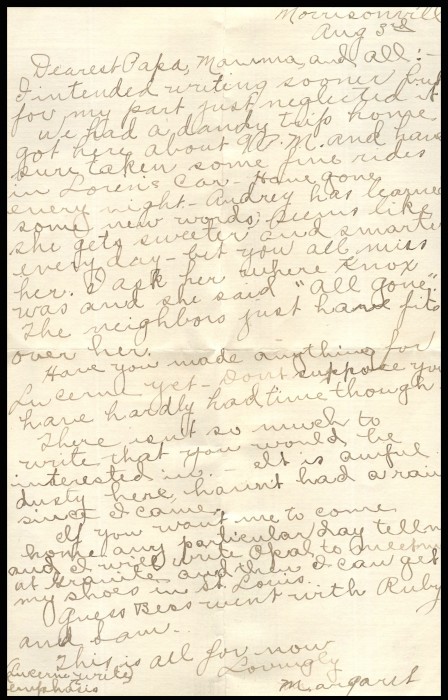 Morrisonvill
Aug 3rd
Dearest Papa, Mamma, and all :-
I intended writing sooner but
for my part just neglected it
We had a dandy trip home
got here about 9 P.M. and have
sure taken some fine rides
in Loren's Car - Have gone
every night - Audrey has learned
some new words; seems like
she gets sweeter and smarter
every day - bet you all miss
her. I ask her where Knox
was and she said "all gone".
The neighbors just have fits
over her.
Have you made anything for
Lucerne yet - Dont suppose you
have hardly had time though
There isn't so much to
write that you would be
interested in. - It is awful
dusty here, haven't had a rain
since I came,
If you want me to come
home any particular day tell me
and I will write Opal to meet me
at Granite and then I can get
my shoes in St Louis.
Guess Bess went with Ruby
and Sam.
This is all for now
Lovingly
Margaret
(Lucerne write)
emphasis